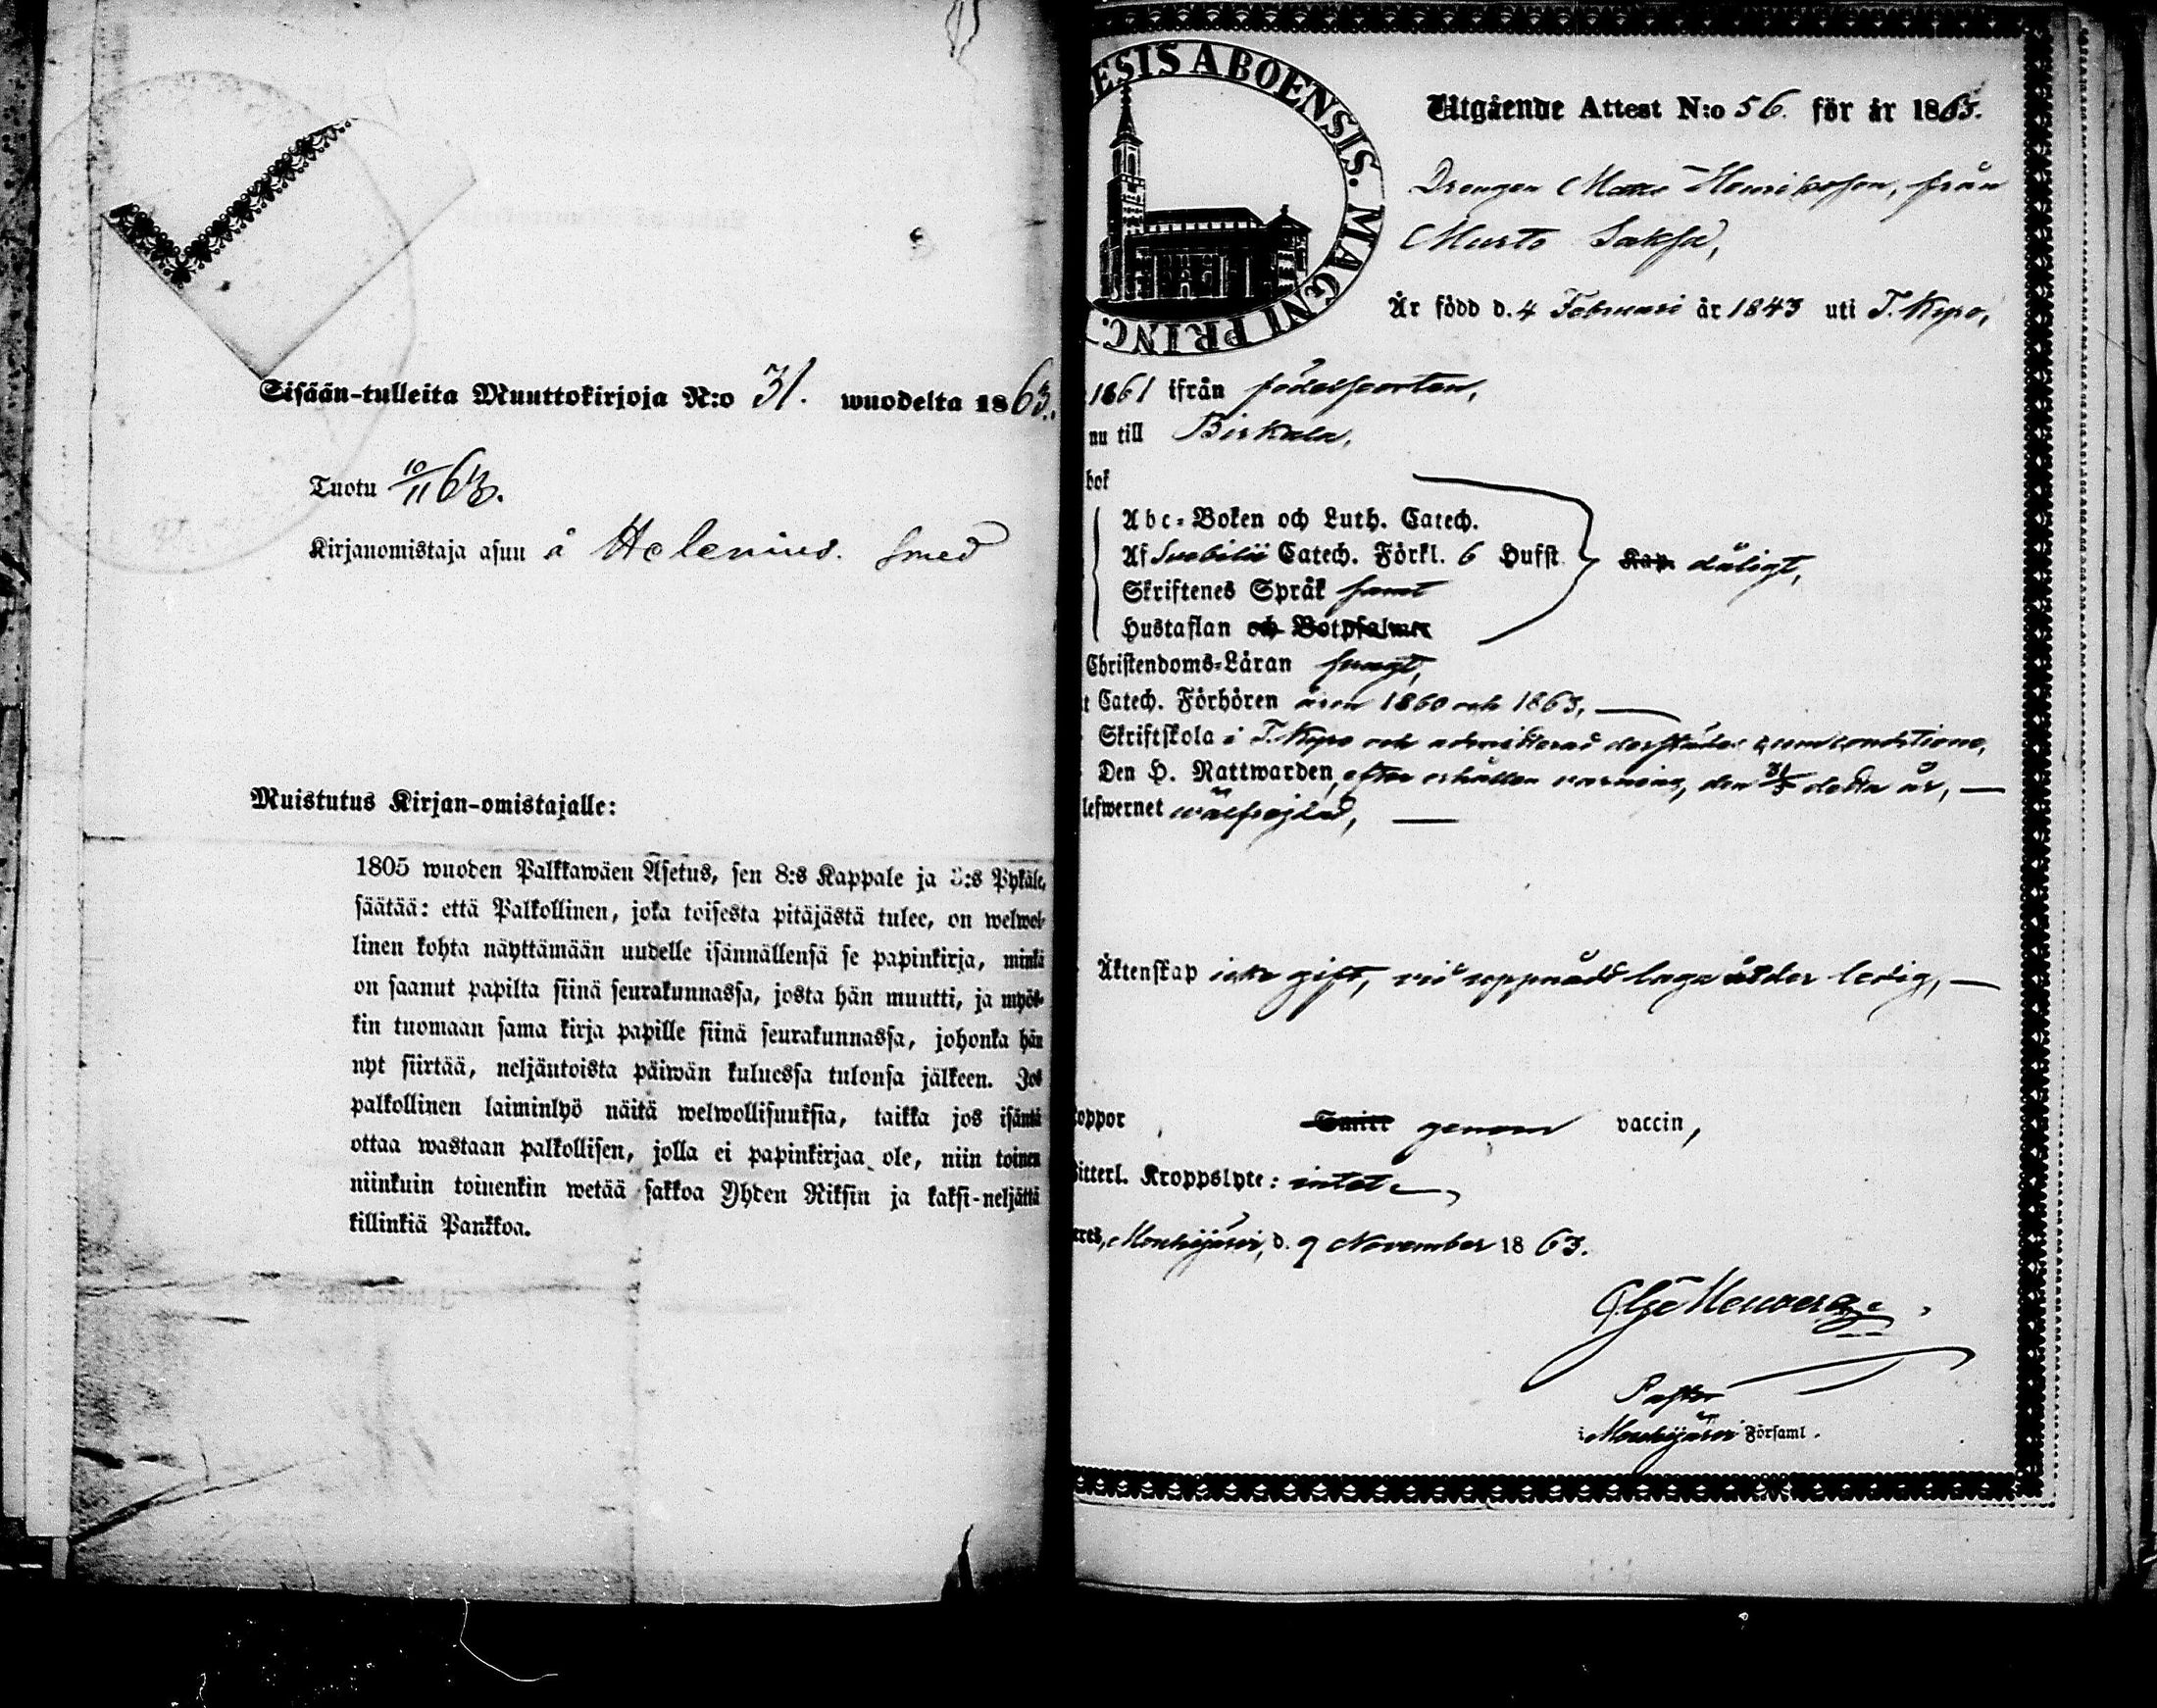 Sisään-tulleita Muuttokirjoja N:o 31. wuodelta 1863.
Tuotu 10/11 63.
Kirjanomistaja asuu å Helenius. Smed
Muistutus Kirjan-omistajalle:
1805 wuoden Palkkawäen Asetus, sen 8:s Kappale ja :s Pykäle,
säätää: että Palkollinen, joka toisesta pitäjästä tulee, on welwol-
linen kohta näyttämään uudelle isännällensä se papinkirja, minkä
on saanut papilta siinä seurakunnassa, josta hän muutti, ja myös-
kin tuomaan sama kirja papille siinä seurakunnassa, johonka hän
nyt siirtää, neljäntoista päiwän kuluessa tulonsa jälkeen. Jos
palkollinen laiminlyö näitä welwollisuuksia, taikka jos isäntä
ottaa wastaan palkollisen, jolla ei papinkirjaa ole, niin toinen
niinkuin toinenkin wetää sakkoa Yhden Riksin ja kaksi-neljättä
killinkiä Pankkoa.
ESIS ABOENSIS. MAGNI PRINC.
Utgående Attest N:o 56. för år 1863.
Drengen Matts Henriksson, från
Murto Saksa,
Är född d. 4 Februari år 1843 uti T. Kyro,
1861 ifrån födelseorten,
nu till Birkala,
bok
Abc-Boken och Luth. Catech.
Af Svebilii Catech. Förkl. 6 Hufst. Kap. dåligt,
Skriftenes Språk samt
Hustaflan och Botpsalmer
Christendoms-Läran svagt,
t Catech. Förhören åren 1860 och 1863, —
Skriftskola i T. Kyro och admitterad derstädes cum conditione,
Den H. Nattwarden, efter erhållen varning, den 31/5 detta år, —
lefwernet wälfrejdad, —
Äktenskap icke gift, vid uppnådd laga ålder ledig, —
koppor genom vaccin,
itterl. Kroppslyte: intet —,
eres, Mouhijärvi, d. 9 November 1863.
Pastor
i Mouhijärvi Församl.